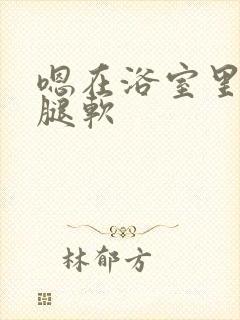 嗯在浴室里
腿软
林郁方